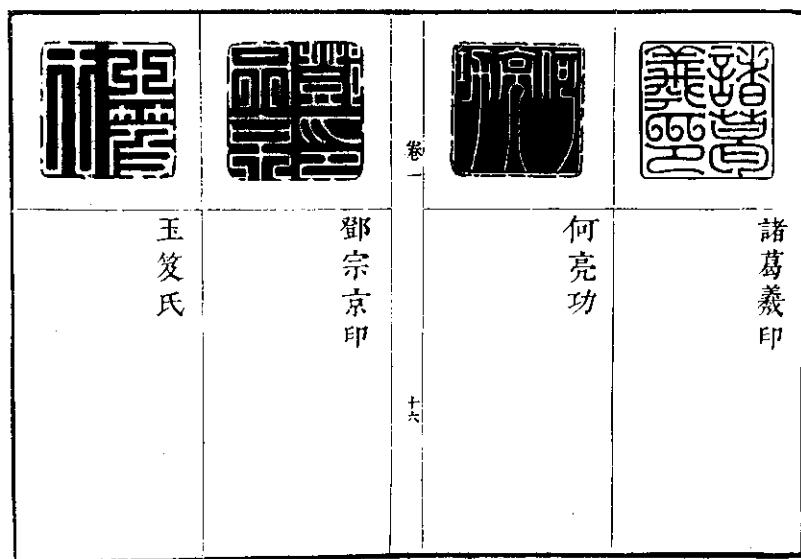 諸葛羲印
何亮功
卷一
十六
鄧宗京印
玉笈氏